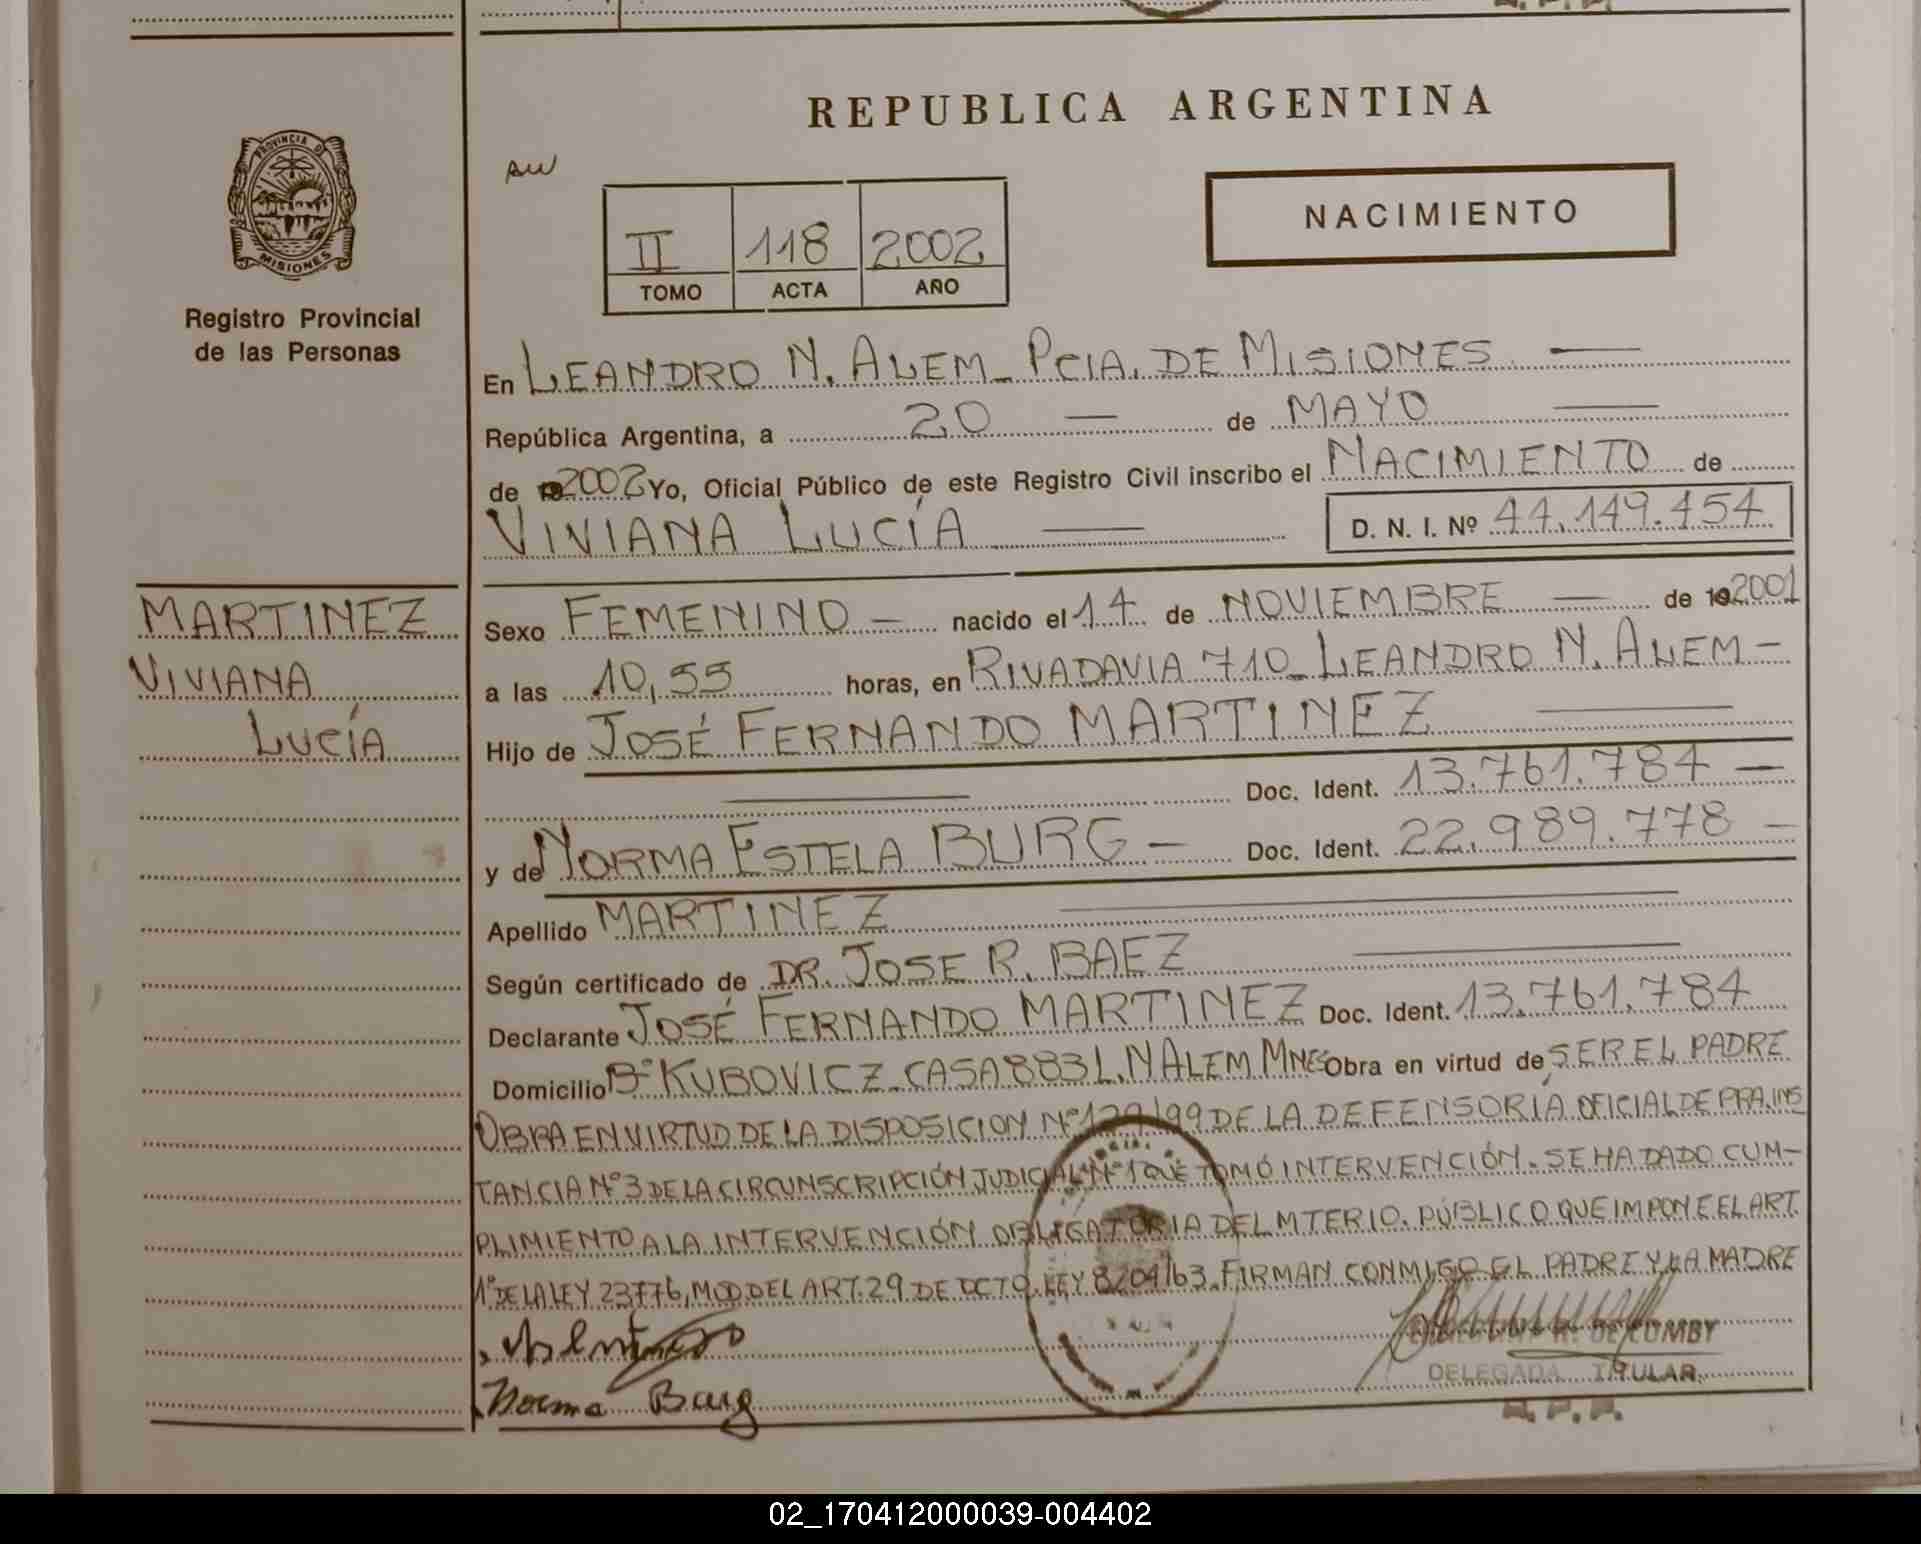 REPUBLICA ARGENTINA
PROVINCIA DE
MISIONES
Registro Provincial
de las Personas
NACIMIENTO
II 118 2002
TOMO ACTA AÑO
En LEANDRO N. ALEM_ PCIA. DE MISIONES
República Argentina, a 20 de MAYO
de 2002 Yo, Oficial Público de este Registro Civil inscribo el NACIMIENTO de
VIVIANA LUCÍA D. N. I. Nº 44.149.454
MARTINEZ
VIVIANA
LUCÍA
Sexo FEMENINO - nacido el 14 de NOVIEMBRE de 2001
a las 10,55 horas, en RIVADAVIA 710_ LEANDRO N. ALEM-
Hijo de JOSÉ FERNANDO MARTINEZ
Doc. Ident. 13.761.784 -
y de NORMA ESTELA BURG - Doc. Ident. 22.989.778 -
Apellido MARTINEZ
Según certificado de DR. JOSE R. BAEZ
Declarante JOSÉ FERNANDO MARTINEZ Doc. Ident. 13.761.784
Domicilio Bº KUBOVICZ-CASA 883 L.N ALEM MNES Obra en virtud de SER EL PADRE
OBRA EN VIRTUD DE LA DISPOSICION Nº 129/99 DE LA DEFENSORÍA OFICIAL DE PRA. INS
TANCIA Nº 3 DE LA CIRCUNSCRIPCIÓN JUDICIAL Nº 1 QUE TOMÓ INTERVENCIÓN. SE HA DADO CUM-
PLIMIENTO A LA INTERVENCIÓN OBLIGATORIA DEL MTERIO. PÚBLICO QUE IMPONE EL ART.
1º DE LA LEY 23776, MOD. DEL ART. 29 DE DCTO. LEY 8204/63. FIRMAN CONMIGO EL PADRE Y LA MADRE
DE CUMBY
DELEGADA TITULAR
Norma Burg
02_170412000039-004402